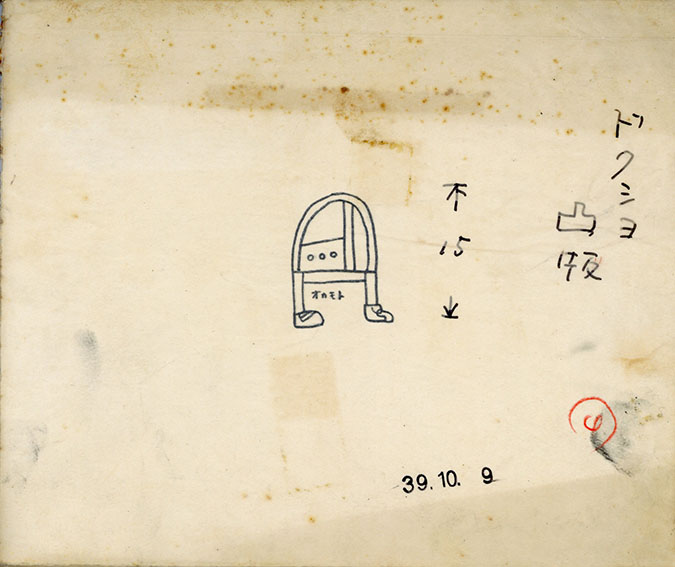 ドクショ
凸版
15
オカモト
39.10. 9